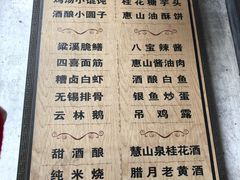 鸡汤小馄饨 桂花糖芋头
酒酿小圆子 惠山油酥饼
梁溪脆鳝 八宝辣酱
四喜面筋 惠山酱油肉
糟卤白虾 酒酿白鱼
无锡排骨 银鱼炒蛋
云林鹅 吊鸡露
甜酒酿 慧山泉桂花酒
纯米烧 腊月老黄酒